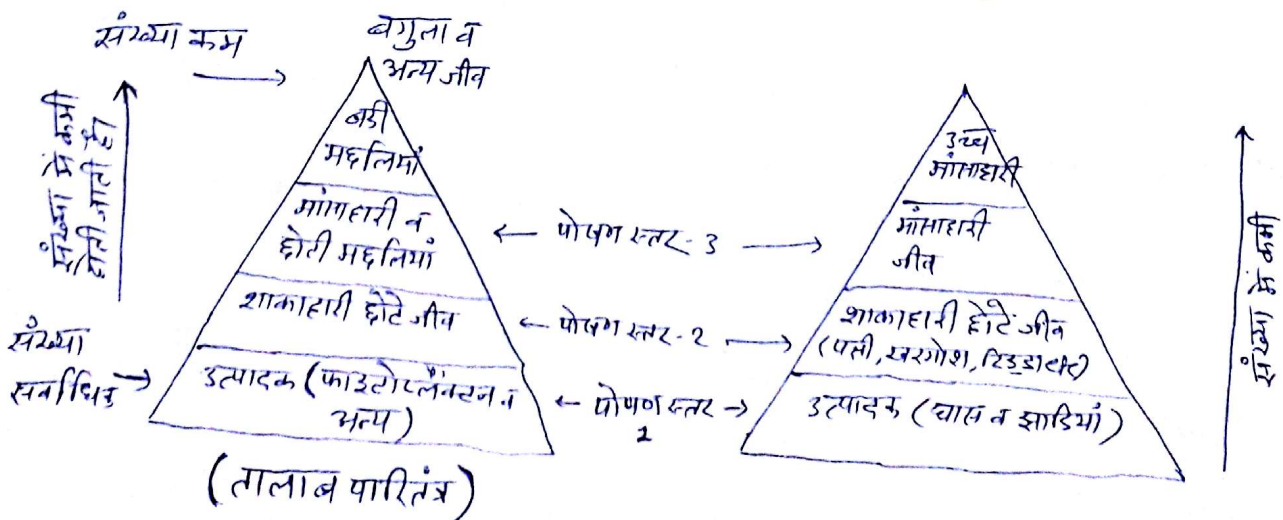 संख्या कम
बगुला व
अन्य जीव
संख्या में कमी
होती जाती है।
बडी
मछलियां
मांसाहारी व
छोटी मछलियां
शाकाहारी छोटे जीव
उत्पादक (फाइटोप्लैंक्टन व
अन्य)
संख्या
सर्वाधिक
(तालाब पारितंत्र)
← पोषण स्तर-3 →
← पोषण स्तर-2 →
← पोषण स्तर →
1
उच्च
मांसाहारी
मांसाहारी
जीव
शाकाहारी छोटे जीव
(पक्षी, खरगोश, टिड्डा
उत्पादक (घास व झाडियां)
संख्या में कमी